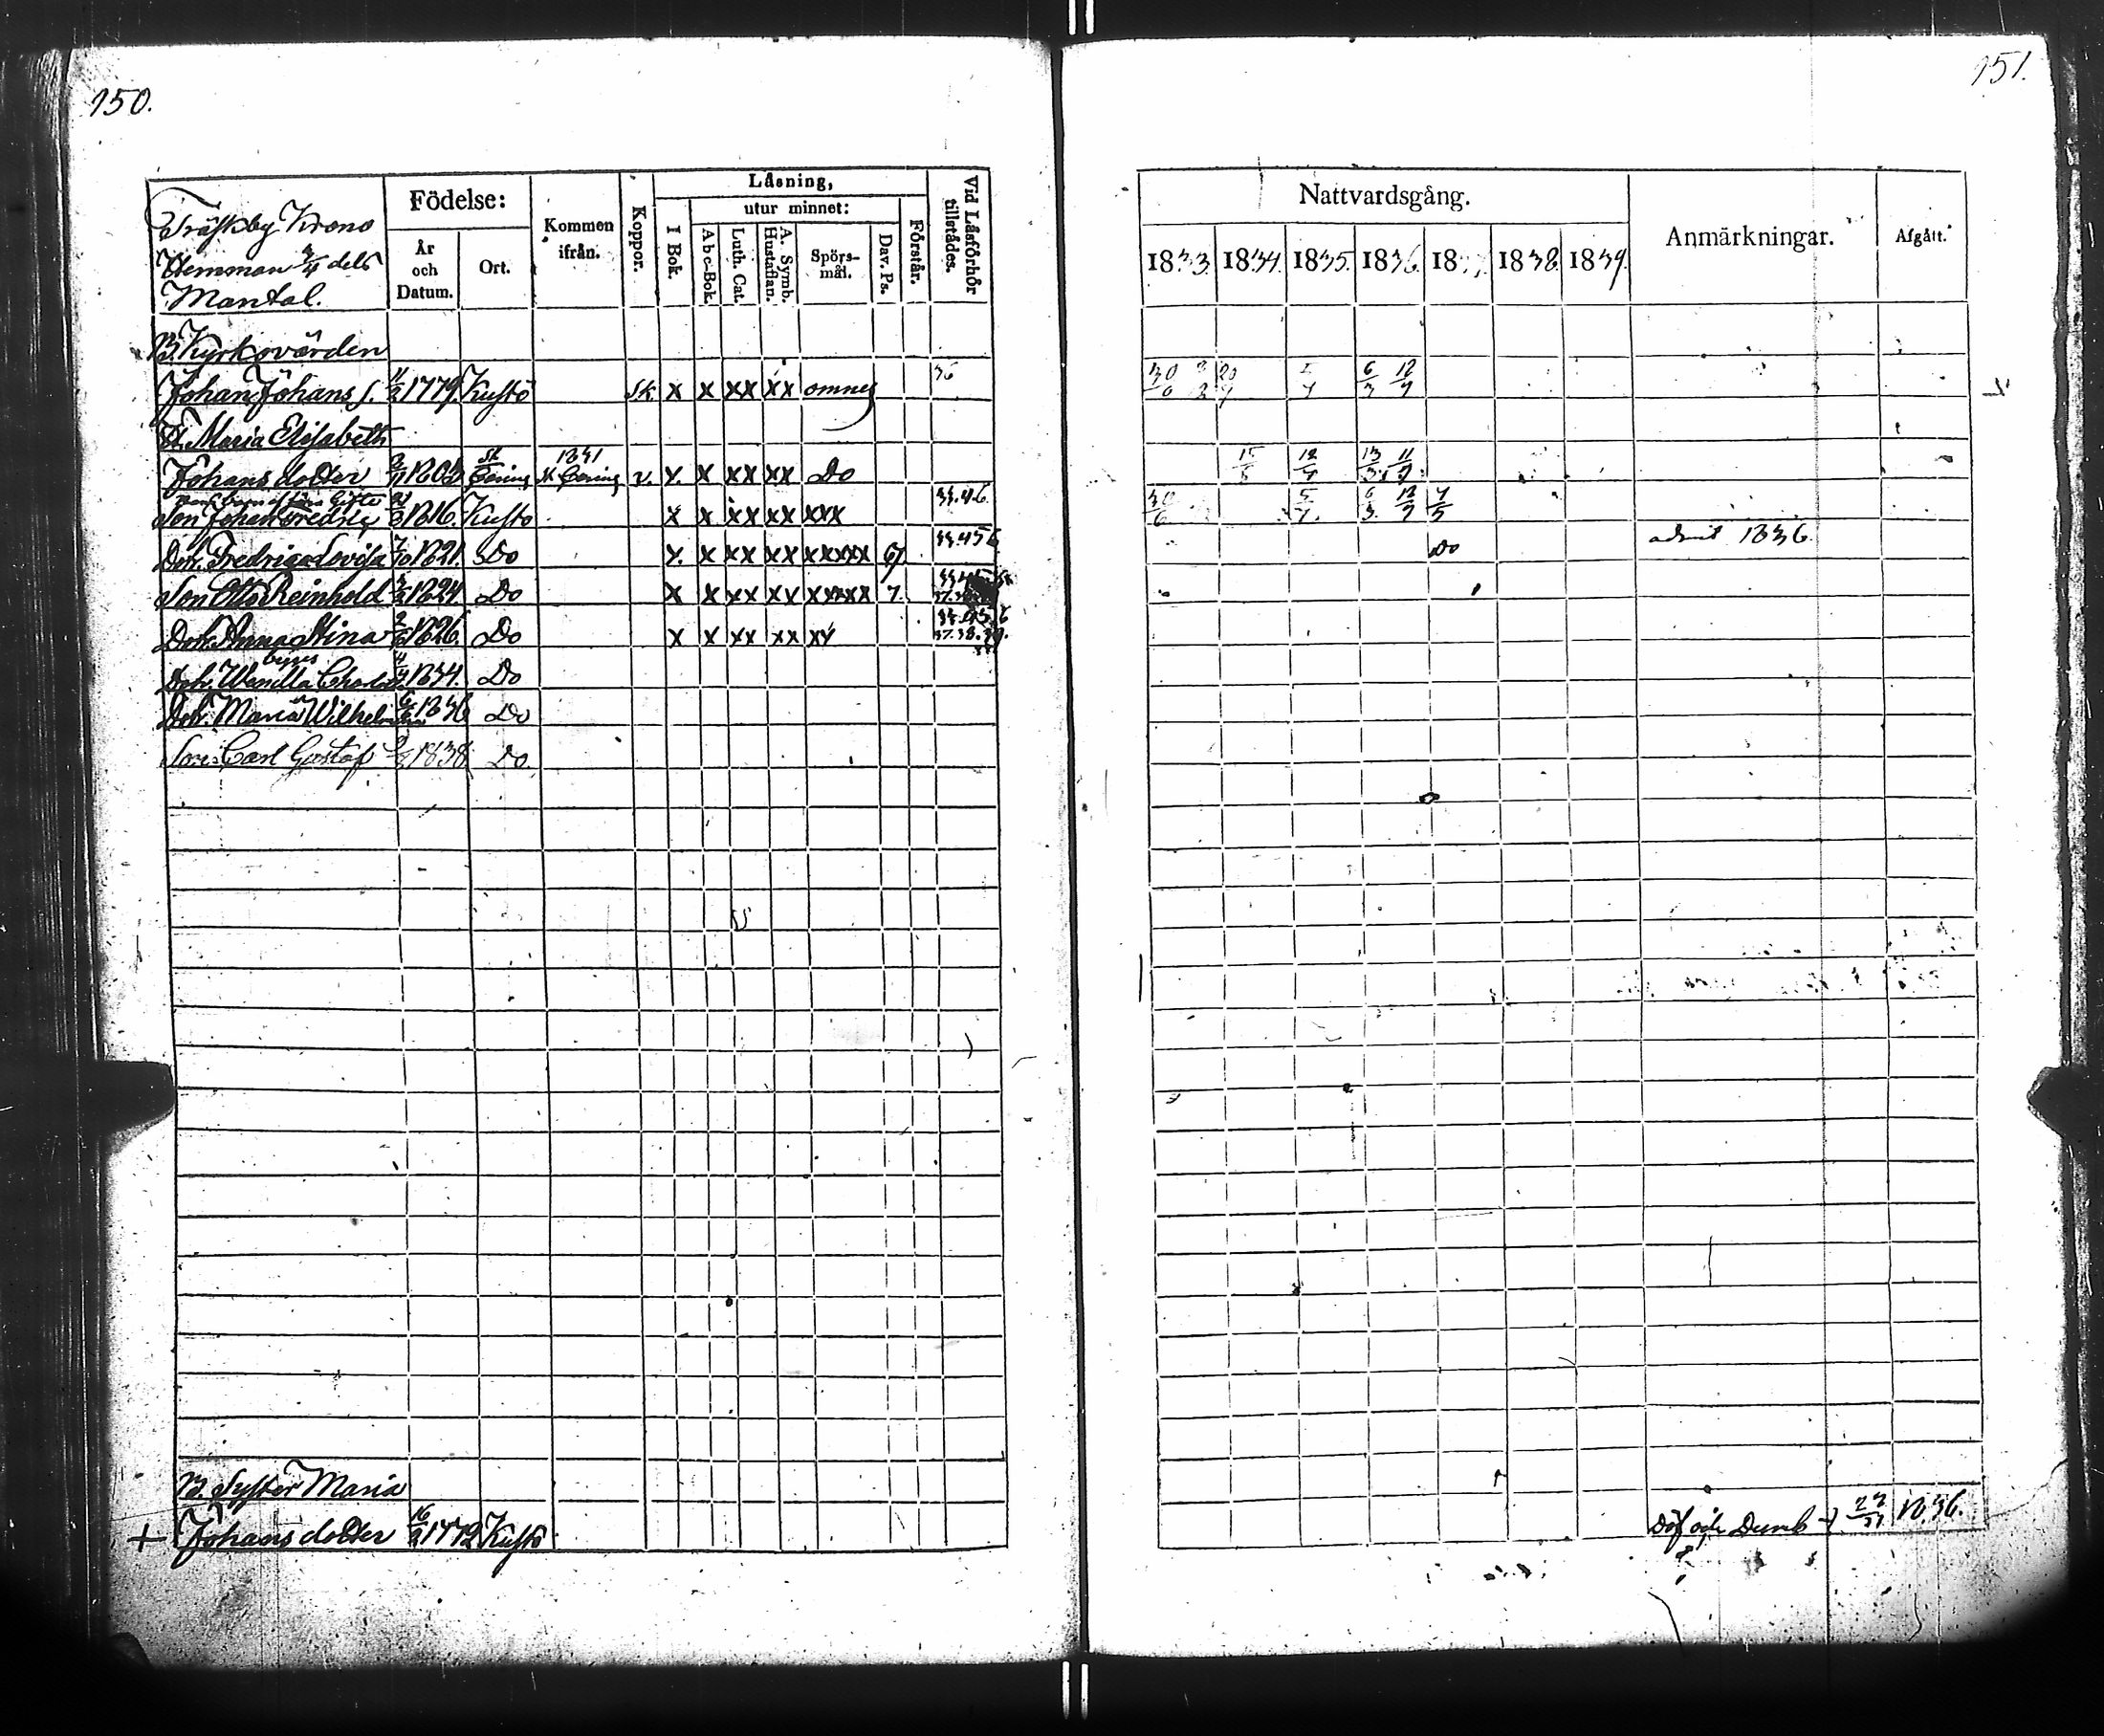 150.
Träskby Krono
Hemman 3/4 dels
Mantal.
Födelse:
År och Datum.
Ort.
Kommen ifrån.
Koppor.
Läsning,
I Bok.
utur minnet:
Abc-Bok.
Luth. Cat.
A. Symb. Hustaflan.
Spörs-mål.
Dav. Ps.
Förstår.
Vid Läsförhör tillstädes.
B. Kyrkovärden
Johan Johans s. 11/2 1779 Kustö sk x x xx xx omnes 36
H. Maria Elisabeth
Johansdotter 1803 1831 v. x x xx xx Do
Son Johan Fredric 1816. Kusto x x xx xx xxx 33.4.6.
Dotr. Fredrica Lovisa 7/10 1821. Do x x xx xx xxxxx 67 33.4.5.6
Son Otto Reinhold 1824. Do x x xx xx xxxxx 7.
Dotr. Anna Stina 1826. Do x x xx xx xx 37.38.39.
Dotr. Wendla 4/4 1834. Do
Dotr. Maria Wilhelmina 1836 Do
Son: Carl Gustaf 1838 Do
B. Syster Maria
+ Johansdotter 16/2 1772 Kusto
151.
Nattvardsgång.
Anmärkningar.
Afgått.
1833. 1834. 1835. 1836. 18 1838. 1839.
30/6 20 6/3 12/9
15/5 12/4 13/3 11/9
30/6 5/7 6/3 12/9 7/5
Do admit 1836.
Döf och Dumb + 1836.